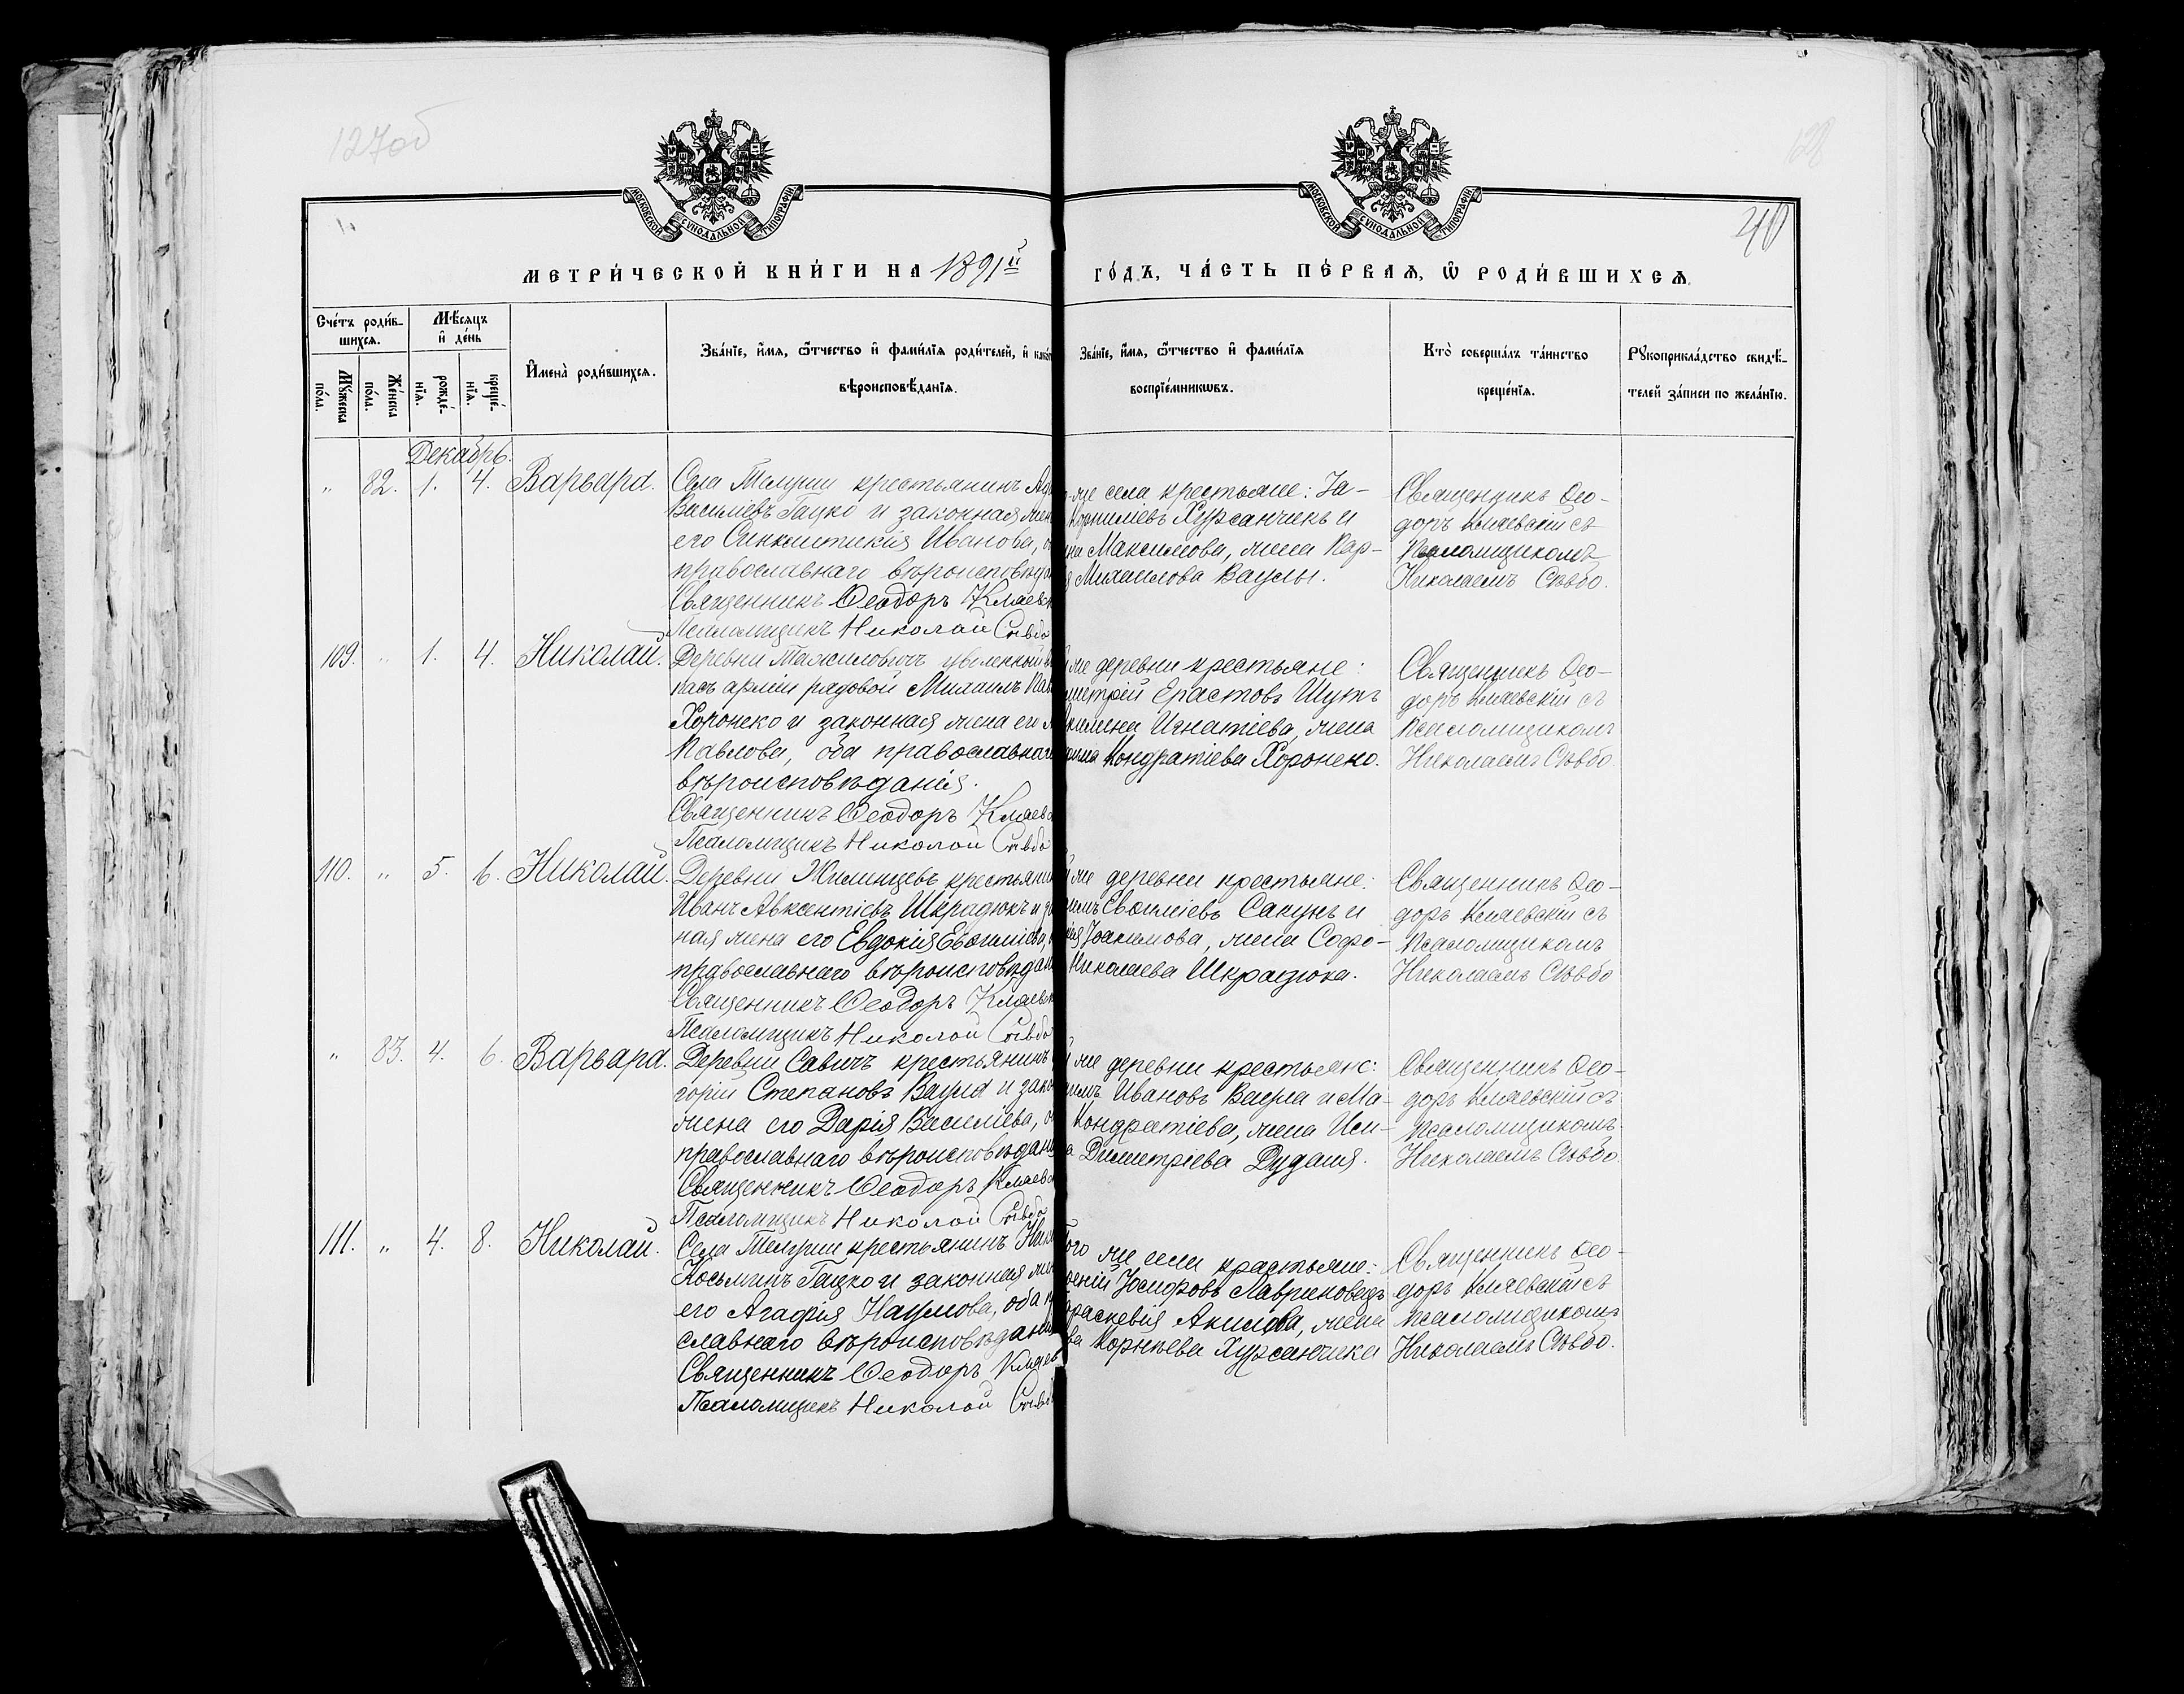 127об
40
МОСКОВСКОЙ СѴНОДАЛЬНОЙ ТИПОГРАФІИ
МОСКОВСКОЙ СѴНОДАЛЬНОЙ ТИПОГРАФІИ
МЕТРИ́ЧЕСКОЙ КНИ́ГИ НА 1891й
ГО́ДЪ, ЧА́СТЬ ПЕ́РВАѦ, Ѿ РОДИ́ВШИХСѦ.
Сче́тъ роди́в-
шихсѧ.
Мꙋ́жеска по́ла.
Же́нска по́ла.
Мѣ́сѧцъ и҆ де́нь
рожде́-
нїѧ.
креще́-
нїѧ.
И҆мена̀ роди́вшихсѧ.
Зва́нїе, и҆́мѧ, ѻ҆́тчество и҆ фами́лїѧ роди́телей, и҆
вѣроисповѣ́данїѧ.
Зва́нїе, и҆́мѧ, ѻ҆́тчество и҆ фами́лїѧ
воспрїе́мникѡвъ.
Кто̀ соверша́лъ та́инство
креще́нїѧ.
Рꙋкоприкла́дство свидѣ́-
телей за́писи по жела́нїю.
Декабрь.
" 82. 1. 4. Варвара.
Села Телуши крестьянинъ
Василіевъ Гацко и законная жен
его Синклитикія Иванова,
православнаго вѣроисповѣдан
Священникъ Ѳеодоръ Кмаевск
Псаломщикъ Николай Сѣвбо
же села крестьяне: За-
Корниліевъ Хурсанчикъ и
на Максимова, жена Кар-
Михаилова Ваулы.
Священникъ Ѳео-
доръ Кмаевскій съ
Псаломщикомъ
Николаемъ Сѣвбо.
109. " 1. 4. Николай.
Деревни Тажиловичъ уволенный въ
пасъ арміи рядовой Михаилъ Пав
Хоронеко и законная жена его
Павлова, оба православнаго
вѣроисповѣданія.
Священникъ Ѳеодоръ Кмаевс
Псаломщикъ Николай Сѣвбо
же деревни крестьяне:
митрій Ерастовъ Шутъ
Игнатіева, жена
Кондратіева Хоронеко.
Священникъ Ѳео-
доръ Кмаевскій съ
Псаломщикомъ
Николаемъ Сѣвбо.
110. " 5. 6. Николай.
Деревни Жилинцевъ крестьянин
Иванъ Авксентіевъ Шкрадюкъ и за
ная жена его Евдокія Евѳиміева,
православнаго вѣроисповѣдан
Священникъ Ѳеодоръ Кмаевск
Псаломщикъ Николай Сѣвбо
же деревни крестьяне:
Сакунъ и
Іоакимова, жена Софо-
Николаева Шкрадюка.
Священникъ Ѳео-
доръ Кмаевскій съ
Псаломщикомъ
Николаемъ Сѣвбо
" 83. 4. 6. Варвара.
Деревни Савичъ крестьянинъ
горій Степановъ Ваула и зако
жена его Дарія Василіева,
православнаго вѣроисповѣдан
Священникъ Ѳеодоръ Кмаевс
Псаломщикъ Николай Сѣвбо
же деревни крестьяне:
Ивановъ Ваула и Ма-
Кондратіева, жена Иси-
Димитріева Дудаля.
Священникъ Ѳео-
доръ Кмаевскій съ
Псаломщикомъ
Николаемъ Сѣвбо.
111. " 4. 8. Николай.
Села Телуши крестьянинъ
Косьминъ Гацко и законная же
его Агафія Наумова, оба
славнаго вѣроисповѣдані
Священникъ Ѳеодоръ Кмаев
Псаломщикъ Николай Сѣвб
ого же села крестьяне:
Іосифовъ Лавриновецъ
раскевія Акилова, жена
Корнѣева Хурсанчика
Священникъ Ѳео-
доръ Кмаевскій съ
псаломщикомъ
Николаемъ Сѣвбо.